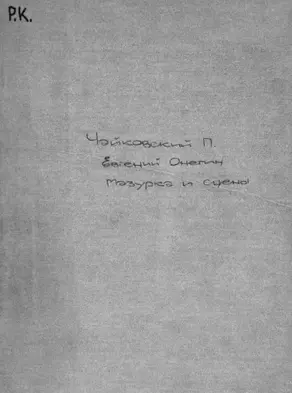 Р.К.
Чайковский П.
Евгений Онегин
Мазурка и сцены